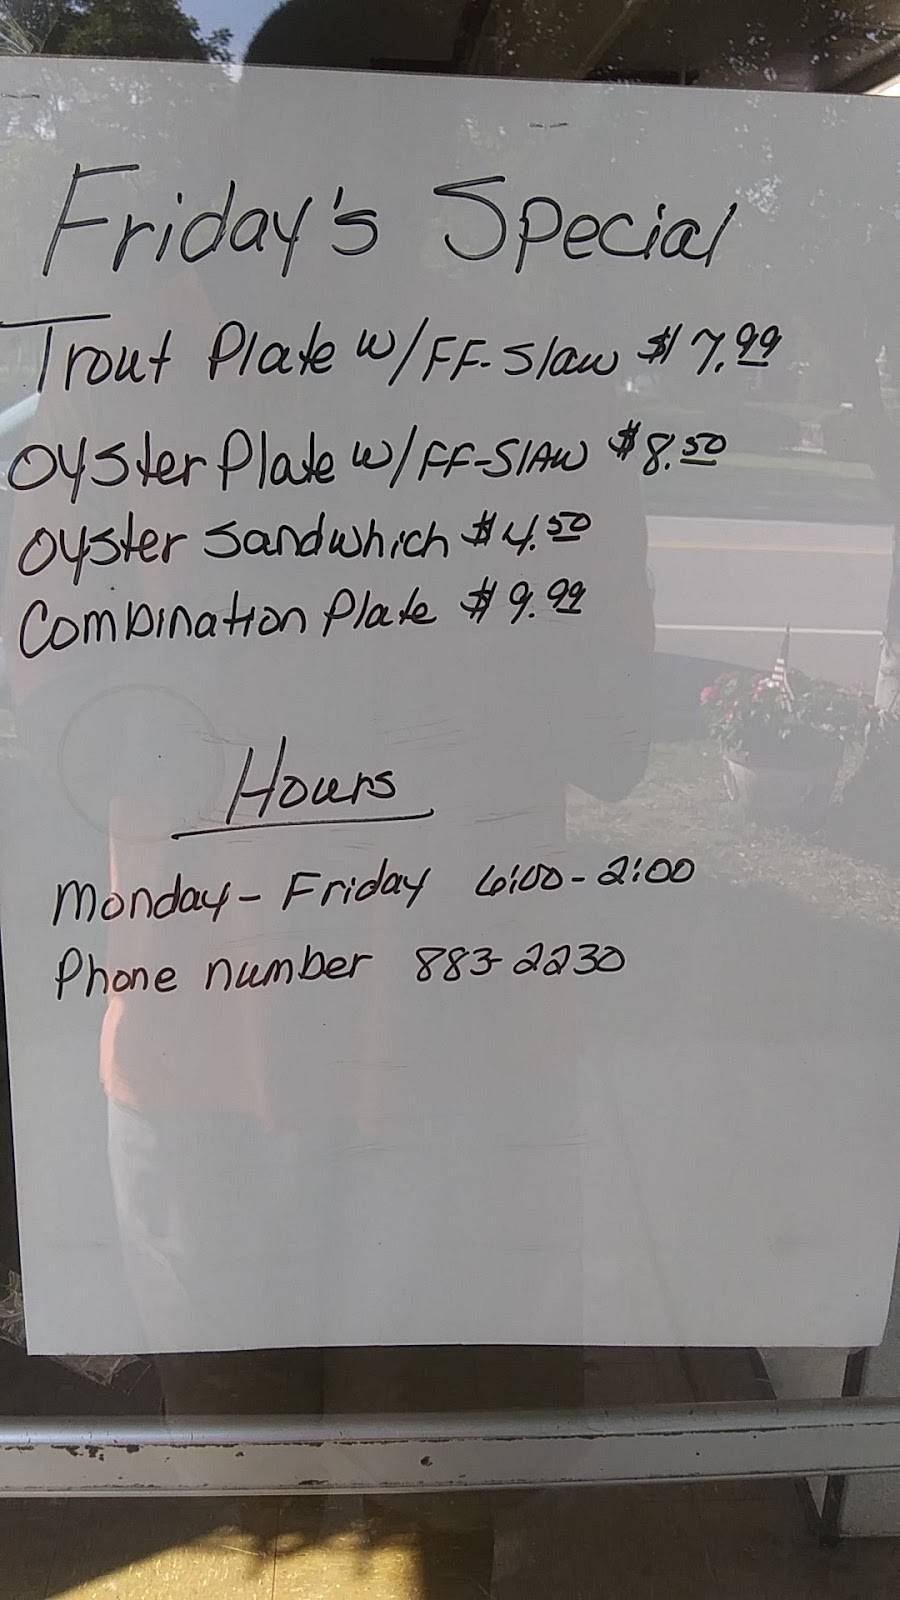 Friday's Special
Trout Plate w/FF-Slaw $7.99
Oyster Plate w/FF-Slaw $8.50
Oyster Sandwhich $4.50
Combination Plate $9.99
Hours
Monday-Friday 6:00-2:00
Phone number 883-2230